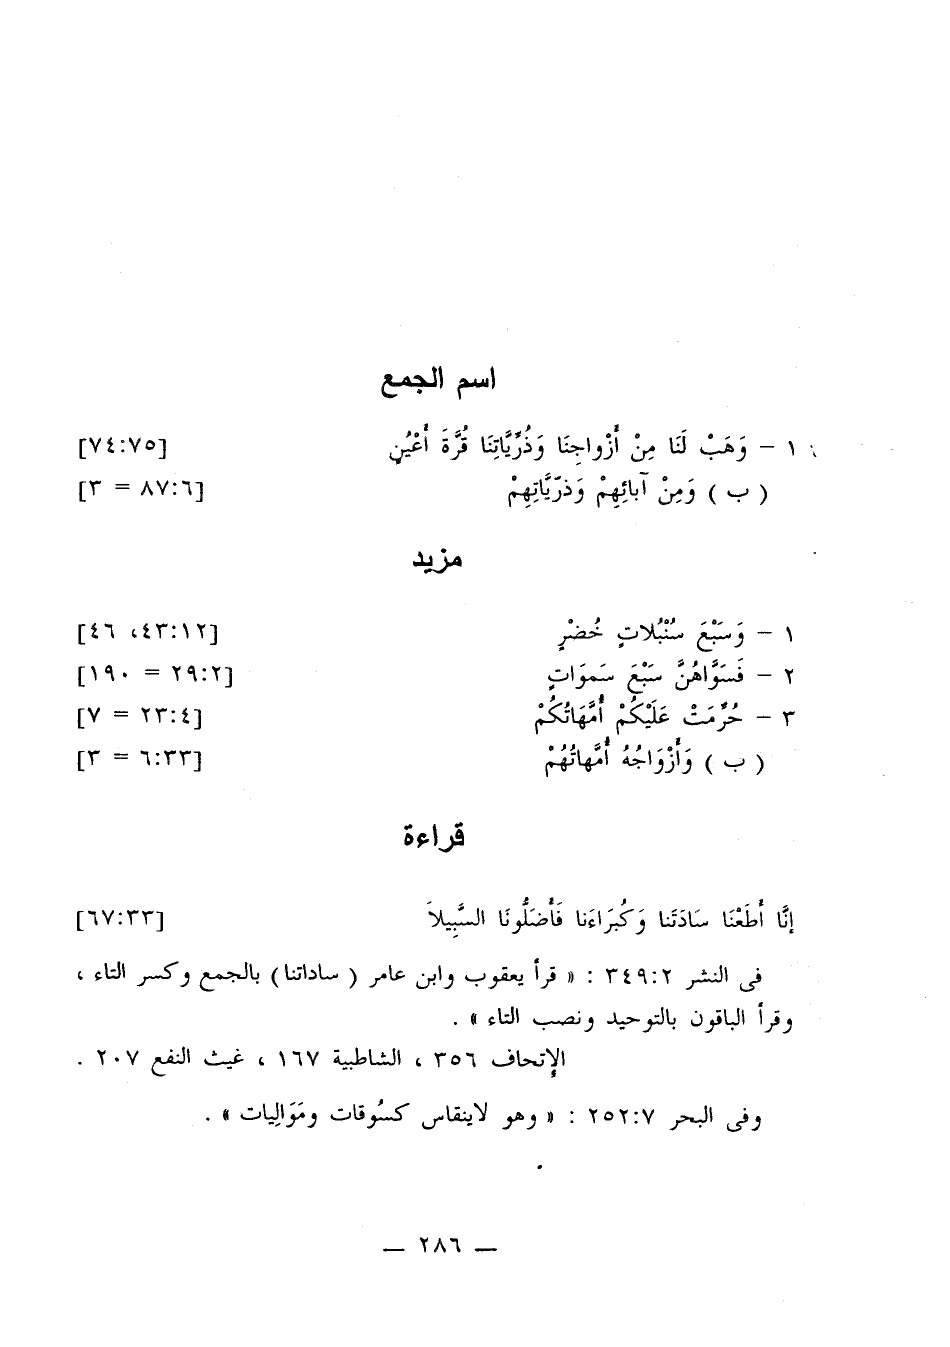 اسم الجمع
١ – وَهَبْ لَنَا مِنْ أَزْواجِنَا وَذُرِّيَّاتِنَا قُرَّةَ أَعْيُنٍ [٧٤:٧٥]
( ب ) وَمِنْ آبائِهِمْ وَذرّيَّاتِهِمْ [٨٧:٦ = ٣]
مزيد
١ – وَسَبْعَ سُنْبُلاتٍ خُضْرٍ [٤٣:١٢، ٤٦]
٢ – فَسَوَّاهُنَّ سَبْعَ سَموَاتٍ [٢٩:٢ = ١٩٠]
٣ – حُرِّمَتْ عَلَيْكُمْ أُمَّهَاتُكُمْ [٢٣:٤ = ٧]
( ب ) وَأَزْوَاجُهُ أُمَّهاتُهُمْ [٦:٣٣ = ٣]
قراءة
إنَّا أَطَعْنَا سادَتَنا وَكُبَرَاءَنا فَأَضَلُّونَا السَّبِيلاَ [٦٧:٣٣]
فى النشر ٣٤٩:٢ : « قرأ يعقوب وابن عامر ( ساداتنا ) بالجمع وكسر التاء ،
وقرأ الباقون بالتوحيد ونصب التاء » .
الإتحاف ٣٥٦ ، الشاطبية ١٦٧ ، غيث النفع ٢٠٧ .
وفى البحر ٢٥٢:٧ : « وهو لاينقاس كسُوقات ومَوَالِيات » .
— ٢٨٦ —